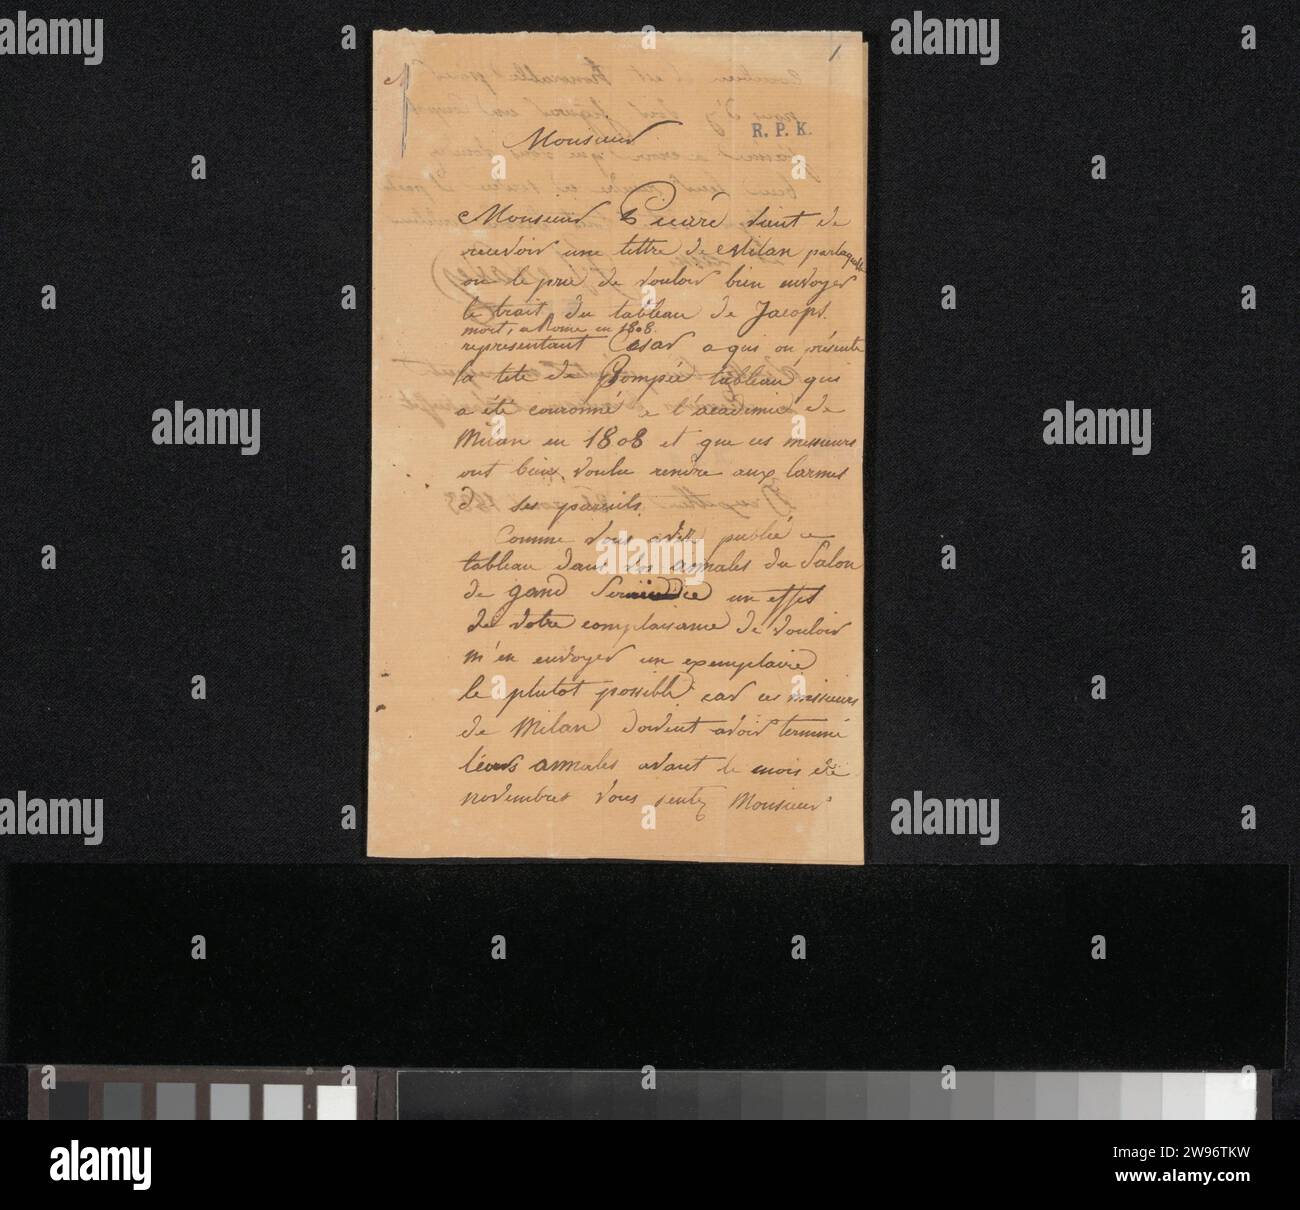 1
R. P. K.
Monsieur
Monsieur Picaré vient de
recevoir une lettre de Milan par laquelle
on le prie de vouloir bien envoyer
le trait du tableau de Jacops
mort, a Rome en 1808.
representant Cesar a qui on présente
la tete de Pompée tableau qui
a été couronné a l'académie de
Milan en 1808 et que ces messieurs
ont bien voulu rendre aux larmes
de ses parents.
Comme vous avez publié ce
tableau dans vos annales du Salon
de gand un effet
de votre complaisance de vouloir
m'en envoyer un exemplaire
le plutot possible car ces messieurs
de Milan doivent avoir terminé
leurs annales avant le mois de
novembre vous sentez Monsieur
alamy
Image ID: 2W96TKW
www.alamy.com